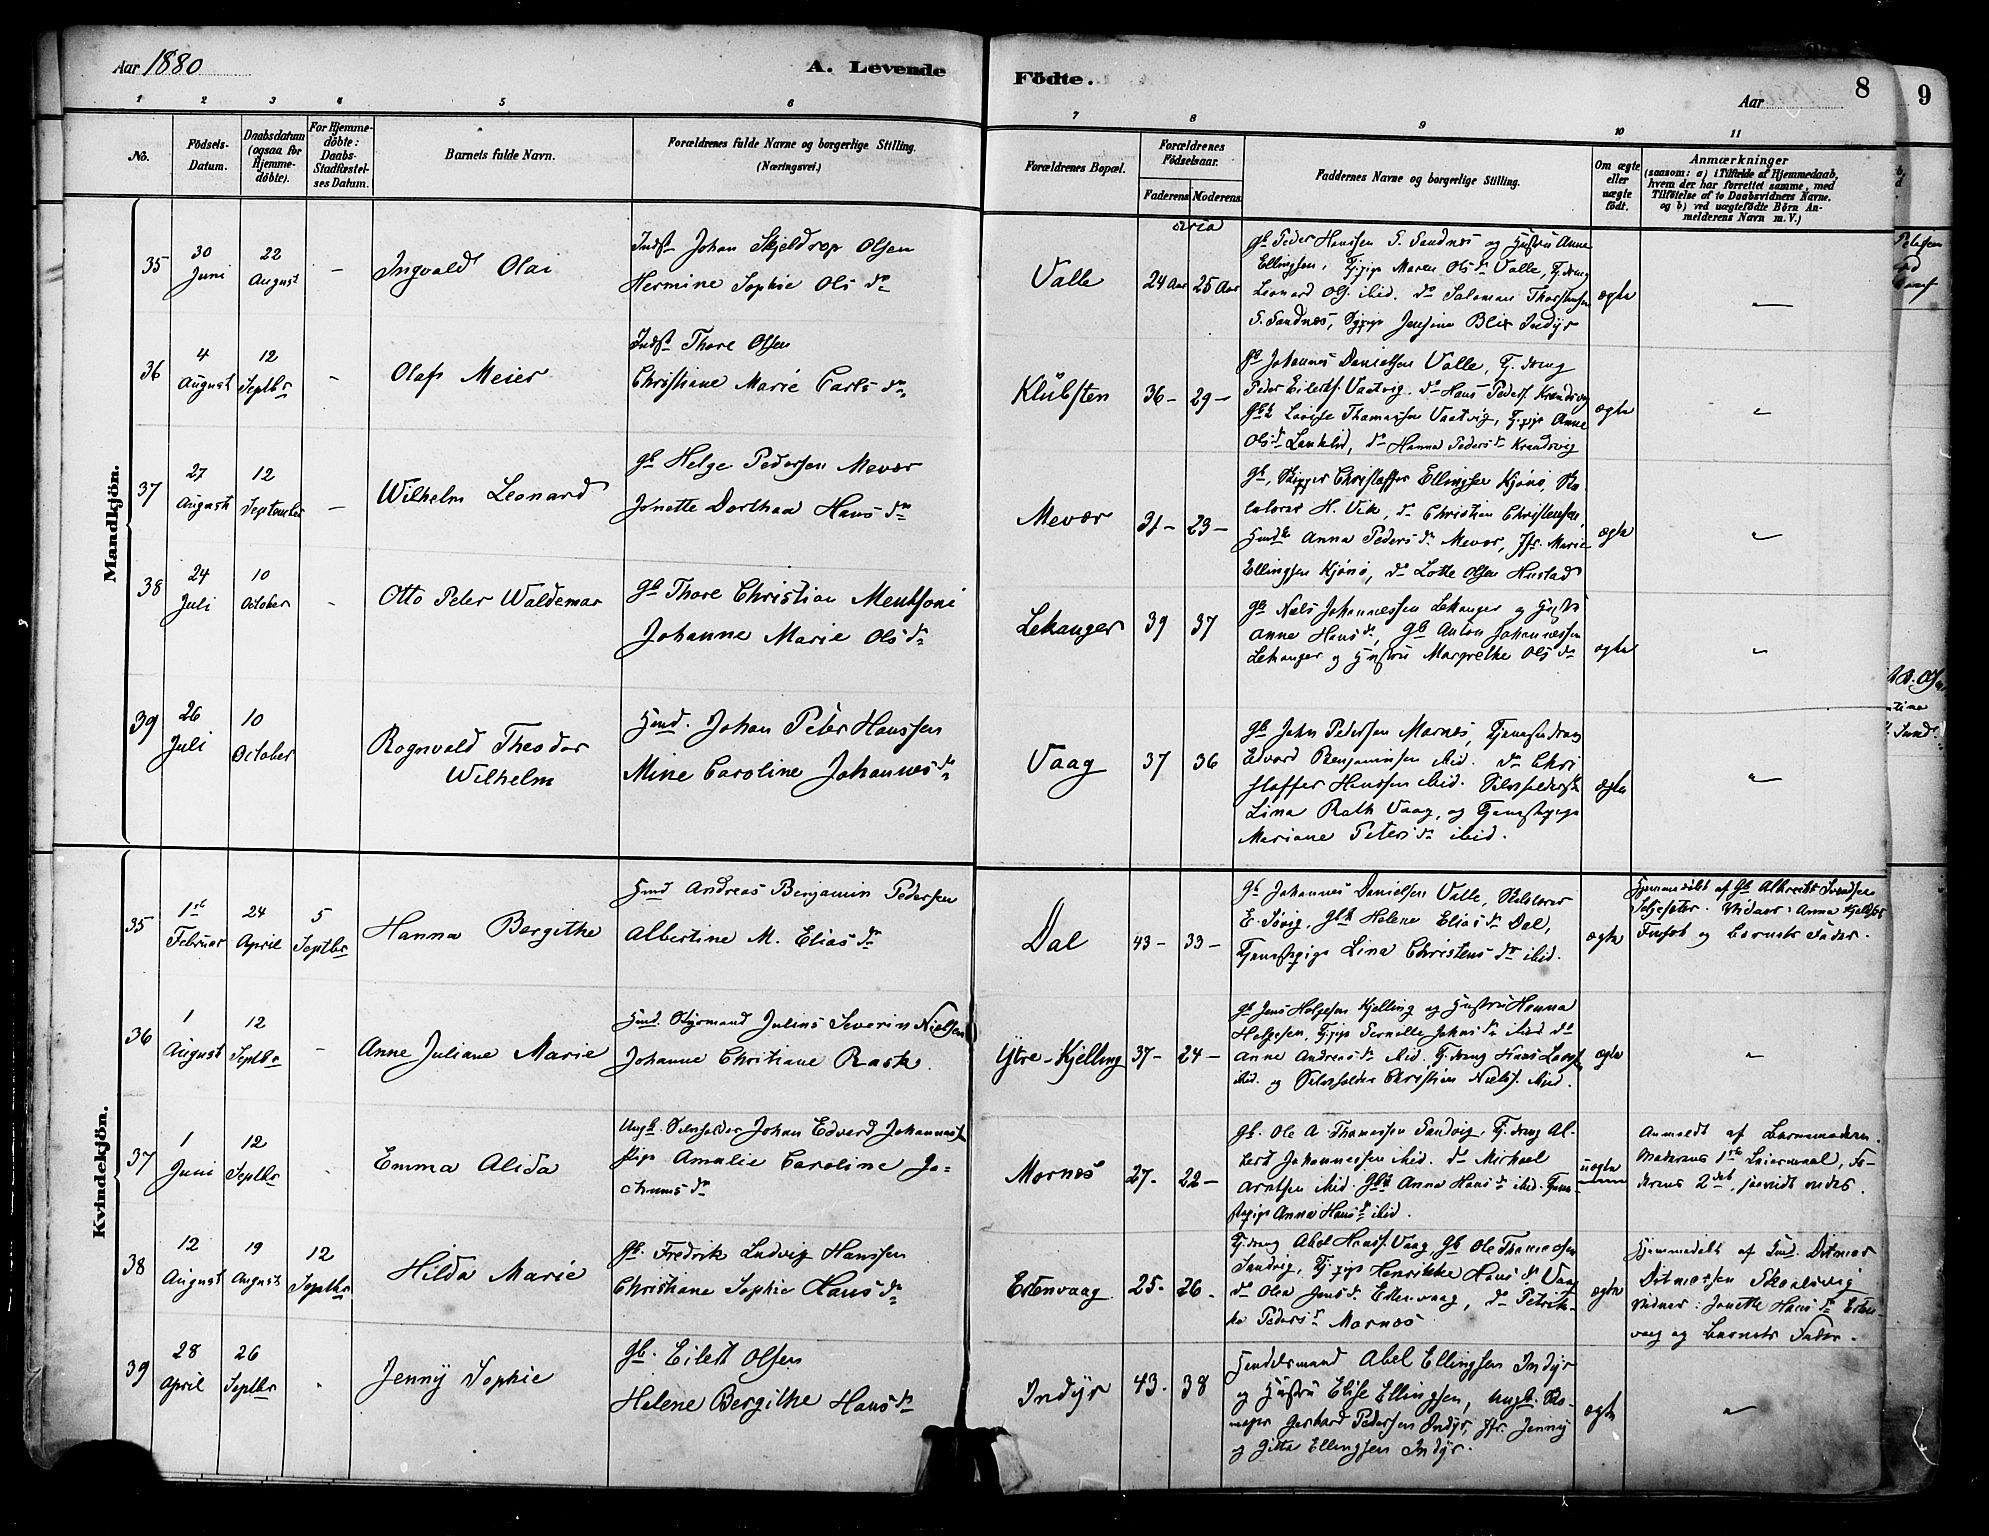 Aar 1880
A. Levende
Födte.
Aar
8
9
1 2 3 4 5 6 7 8 9 10 11
No.
Födsels-Datum.
Daabsdatum (ogsaa for Hjemmedöbte).
For Hjemmedöbte: Daabs-Stadfæstelses Datum.
Barnets fulde Navn.
Forældrenes fulde Navne og borgerlige Stilling.
(Næringsvei.)
Forældrenes Bopæl.
Forældrenes Födselsaar.
Faderens Moderens
Faddernes Navne og borgerlige Stilling.
Om ægte eller uægte födt.
Anmærkninger
(saasom: a) i Tilfælde af Hjemmedaab,
hvem der har forrettet samme, med
Tilföielse af to Daabsvidners Navne.
og b) ved uægtefödte Börn Anmelderens Navn m. V.)
Mandkjön.
circa
35 30 Juni 22 August –
Ingvald Olai
Indst Johan Skjeldrop Olsen
Hermine Sophie Ols dr
Valle 24 Aar 25 Aar
Gb Peder Hanssen S. Sandnes og Hustru Anne
Ellingsen, Tj.pige Maren Ols dr Valle, Tj.dreng
Leonard Ols. ibid. do Salomon Thorstensen
S. Sandnes, Pige Jensine Blix Indyr
ægte "
36 4 August 12 Septbr –
Olaf Meier
Indst Thore Olsen
Christiane Marie Carls dr
Klubsten 36 – 29 –
Gb Johannes Danielsen Valle, Tj.dreng
Peder Eilerts. Vaatvig. do Hans Peders.
Gbk Lovise Thomassen Vaatvig, Tj.pige Anne
Ols dr do Hanna Peders dr
ægte "
37 27 August 12 September –
Wilhelm Leonard
Gb Helge Pedersen Mevær
Jonette Dorthea Hans dr
Mevær 31 – 23 –
Gb, Skipper Christoffer Ellingsen Kjönö,
H. Vik, do Christian Christensen,
Anna Peders dr Mevær, Jfr. Marie
Ellingsen Kjönö, do Lotte Olsen Hustad
ægte "
38 24 Juli 10 October –
Otto Peter Waldemar
Gb Thore Christian Mentsoni
Johanne Marie Ols dr
Lekanger 39 37
Gb Niels Johannessen Lekanger og Hustru
Anne Hans dr, Gb Anton Johannessen
Lekanger og Hustru Margrethe Ols dr
ægte "
39 26 Juli 10 October
Rognvald Theodor
Wilhelm
Hmd. Johan Peter Hanssen
Mine Caroline Johannes dr
Vaag 37 36
Gb John Pedersen Mornes, Tjenestdreng
Edvard Benjaminsen ibid. do Chri
stoffer Hanssen ibid.
Lina Rask Vaag, og Tjenestpige
Mariane Peters dr ibid.
ægte "
Kvindekjön.
35 1ste Februar 24 April 5 Septbr
Hanna Bergithe
Hmd Andreas Benjamin Pedersen
Albertine M. Elias dr
Dal 43 – 33 –
Gb Johannes Danielsen Valle,
E. Sövig, Gbk Helene Elias dr Dal,
Tjenestpige Lina Christens dr ibid.
ægte
Hjemmedöbt af Gb Albrecht Svendsen
Vidner: Anna
og Barnets Fader.
36 1 August 12 Septbr –
Anne Juliane Marie
Hmd. Styrmand Julius Severin Nielsen
Johanne Christiane Rask.
Ytre-Kjelling 37 – 24 –
Gb Jens Holgersen Kjelling og Hustru Hanna
Holgersen, Tj.pige Pernille Johns dr ibid do
Anne Andreas dr ibid. Tj.dreng Hans
ibid. og Selvfolder Christian Niels. ibid.
ægte "
37 1 Juni 12 Septbr –
Emma Alida
Ungk. Selvfolder Johan Edvard Johannessen
Pige Amalie Caroline Jo-
chums dr
Mornes 27 – 22 –
Gb. Ole A. Thomassen Sandvig, Tj.dreng Al-
bert Johannessen ibid. do Michael
Arntsen ibid. Gbk Anna Hans dr ibid. Tjene-
stepige Anna Hans dr ibid.
uægte
Anmeldt af Barnemoderen.
Moderens 1ste Leiermaal, Fa-
derens 2det, saavidt vides.
38 12 August 19 August 12 Septbr
Hilda Marie
Gb. Fredrik Ludvig Hanssen
Christiane Sophie Hans dr
Estenvaag 25 – 26 –
Tj.dreng Abel Hanss. Vaag, Gb Ole Thomassen
Sandvig, Tj.pige Henrikke Hans dr Vaag
do Olea Jens dr Estenvaag, do Petrik-
ke Peders dr Mornes
ægte
Hjemmedöbt af Ind. Ditmar
Ditmarsen Skaalsvig
Vidner: Jonette Hans dr Esten-
vaag og Barnets Fader.
39 28 April 26 Septbr –
Jenny Sophie
Gb. Eilert Olsen
Helene Bergithe Hans dr
Indyr 43. 38
Handelsmand Abel Ellingsen Indyr
og Hustru Elise Ellingsen, Ungk.
Gerhard Pedersen Indyr, Jfr. Jenny
og Gitta Ellingsen Indyr.
ægte "